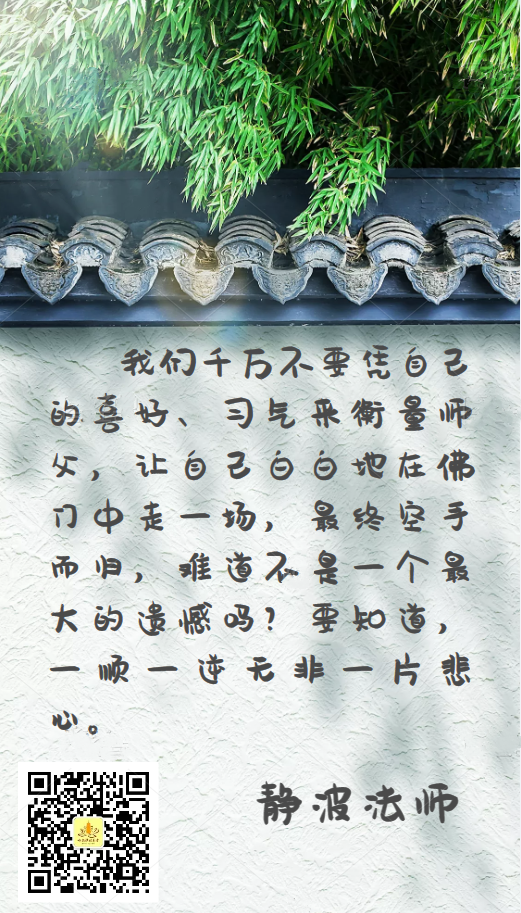 我们千万不要凭自己
的喜好、习气来衡量师
父，让自己白白地在佛
门中走一场，最终空手
而归，难道不是一个最
大的遗憾吗？要知道，
一顺一逆无非一片悲
心。
静波法师